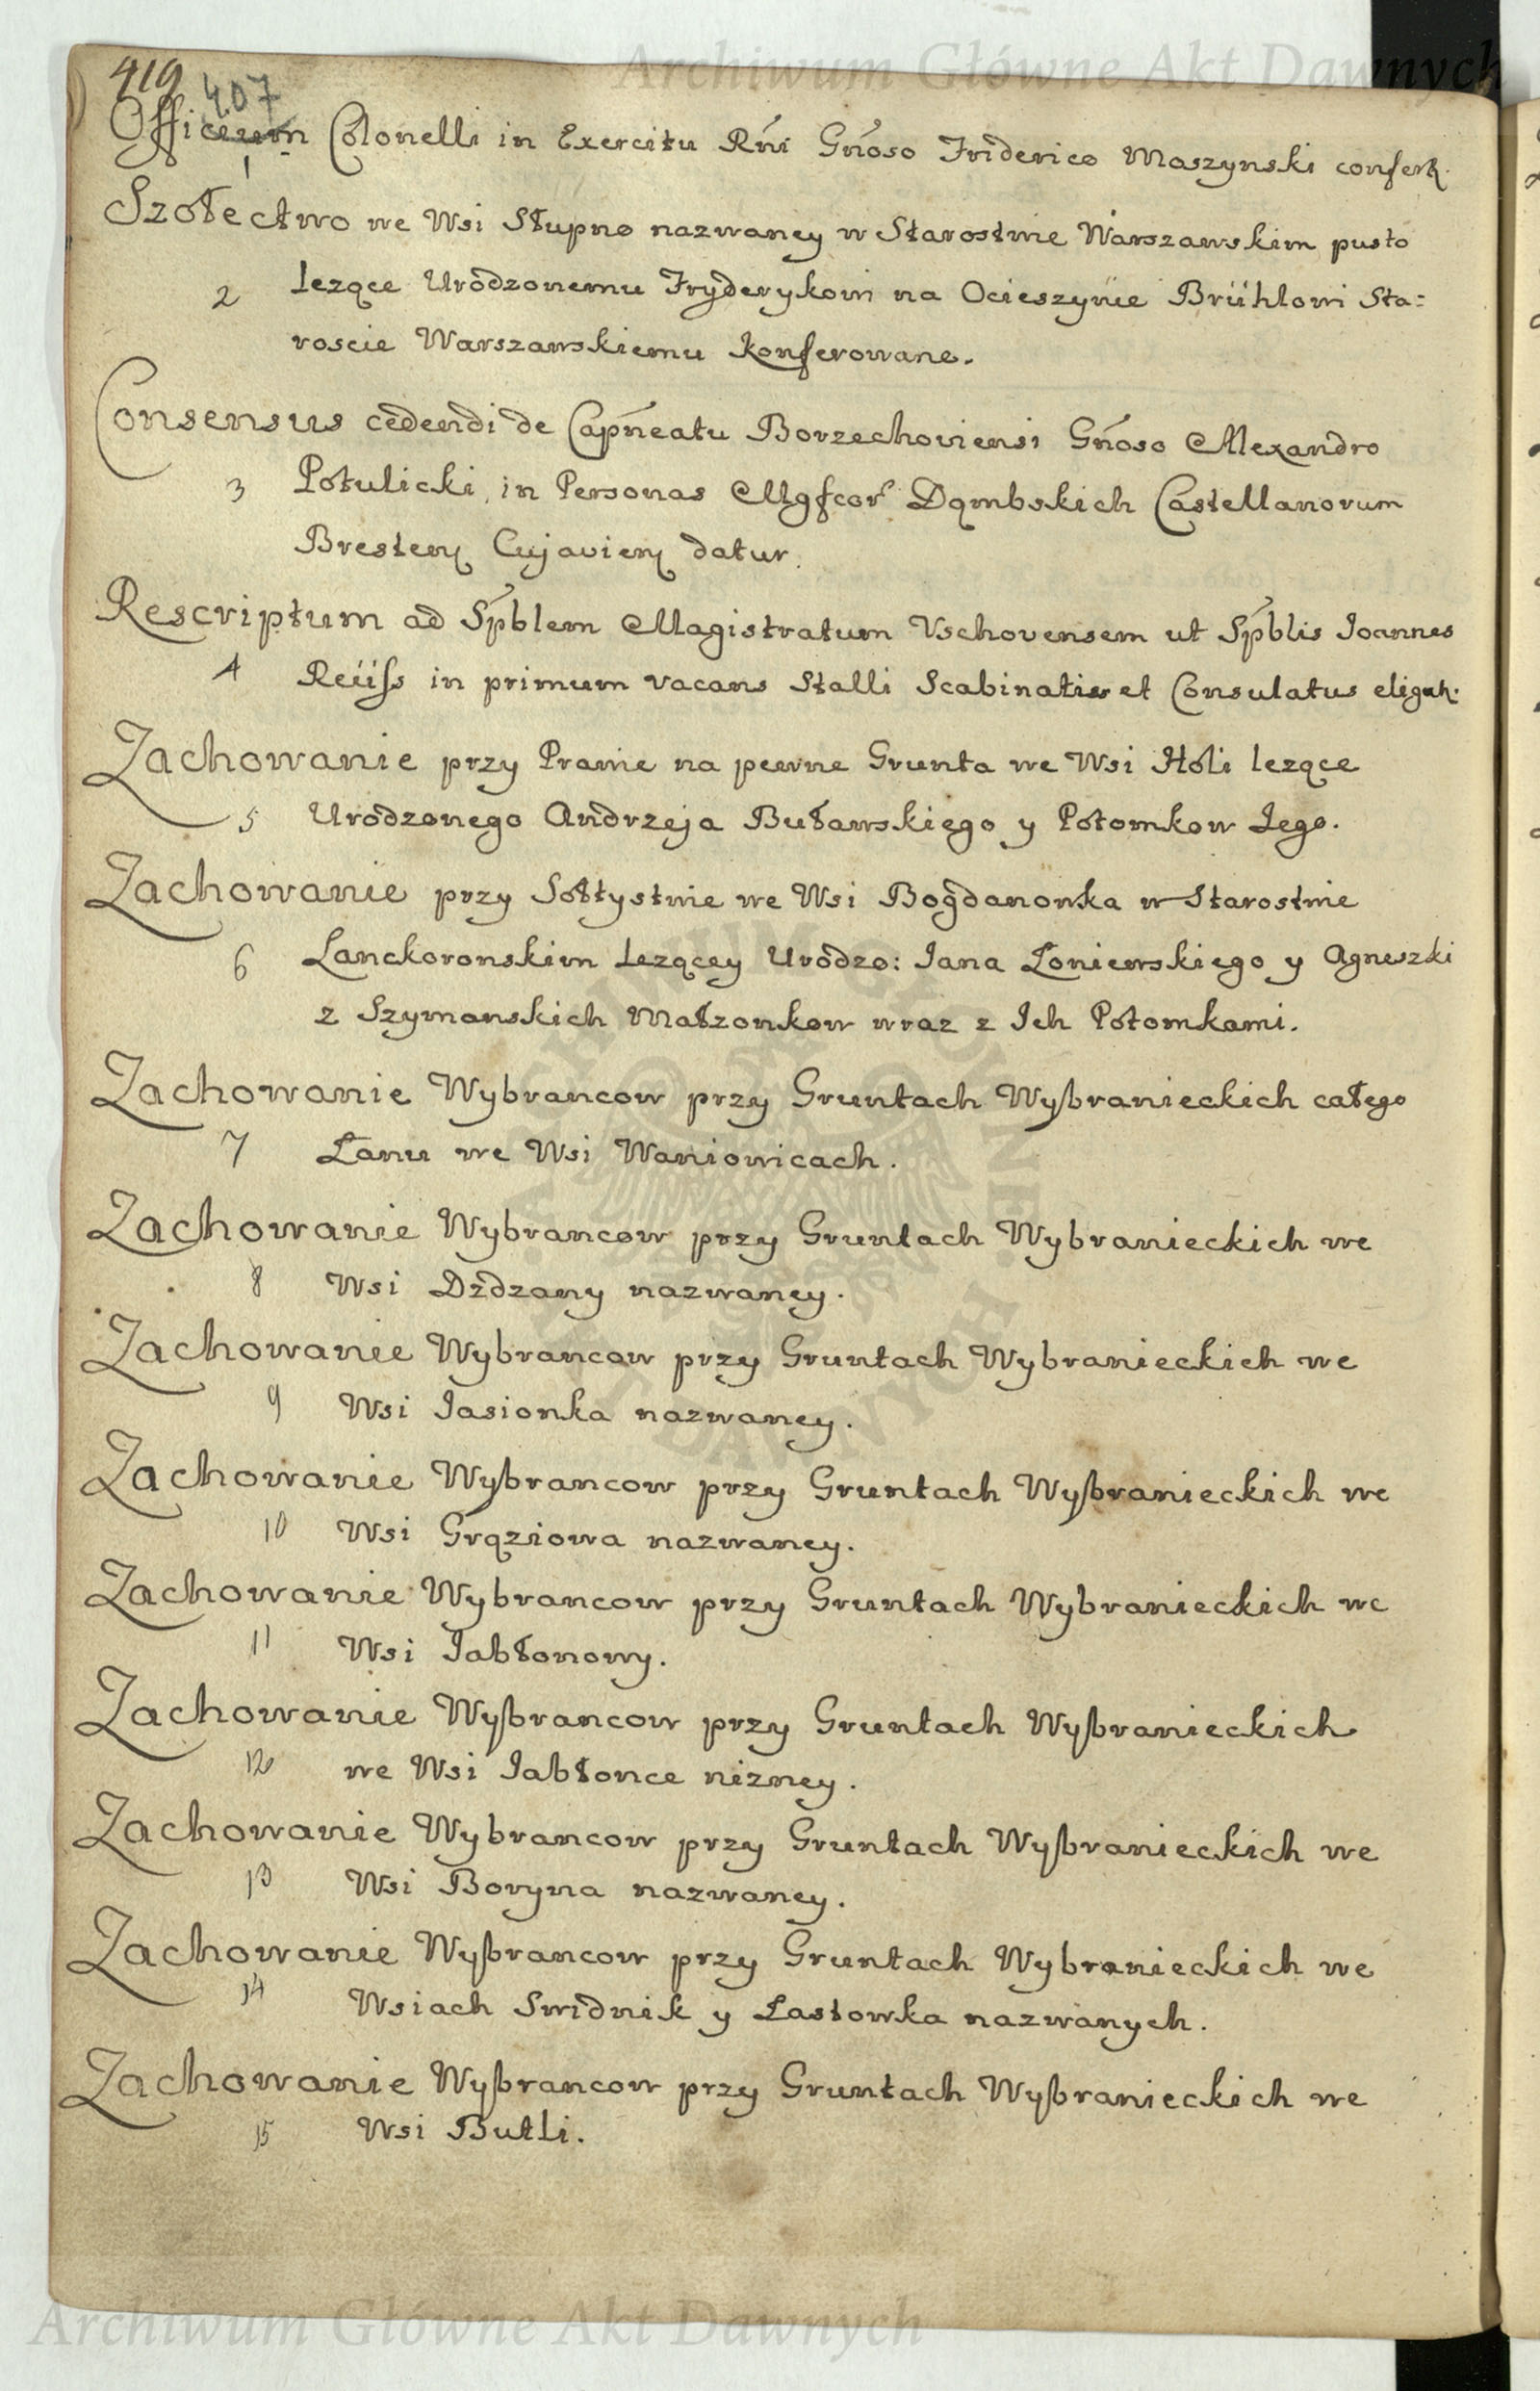 Archiwum Główne Akt Dawnych
419
407
Officium Colonelli in Exercitu Rńi Gńoso Friderico Moszynski confertr.
1
Szołectwo we Wsi Słupno nazwaney w Starostwie Warszawskim pusto
2 lezące Urodzonemu Fryderykowi na Ocieszynie Brühlowi Sta=
roscie Warszawskiemu konferowane.
Consensus cedendi de Capńeatu Borzechoviensi Gńoso Alexandro
3 Potulicki, in Personas Mgfcor Dąmbskich Castellanorum
Bresten Cujavien datur.
Rescriptum ad Sṕblem Magistratum Vschovensem ut Sṕblis Joannes
4 Reüss in primum vacans Stalli Scabinatus et Consulatus eligatr.
Zachowanie przy Prawie na pewne Grunta we Wsi Holi lezące
5 Urodzonego Andrzeja Buławskiego y Potomkow Jego.
Zachowanie przy Sołtystwie we Wsi Bogdanowka w Starostwie
6 Lanckoronskim lezącey Urodzo: Jana Łoniewskiego y Agneszki
z Szymanskich Małzonkow wraz z Ich Potomkami.
Zachowanie Wybrancow przy Gruntach Wybranieckich całego
7 Łanu we Wsi Waniowicach.
Zachowanie Wybrancow przy Gruntach Wybranieckich we
8 Wsi Dzdzany nazwaney.
Zachowanie Wybrancow przy Gruntach Wybranieckich we
9 Wsi Jasionka nazwaney.
Zachowanie Wybrancow przy Gruntach Wybranieckich we
10 Wsi Grąziowa nazwaney.
Zachowanie Wybrancow przy Gruntach Wybranieckich we
11 Wsi Jabłonowy.
Zachowanie Wybrancow przy Gruntach Wybranieckich
12 we Wsi Jabłonce nizney.
Zachowanie Wybrancow przy Gruntach Wybranieckich we
13 Wsi Boryna nazwaney.
Zachowanie Wybrancow przy Gruntach Wybranieckich we
14 Wsiach Swidnik y Łastowka nazwanych.
Zachowanie Wybrancow przy Gruntach Wybranieckich we
15 Wsi Butli.
Archiwum Główne Akt Dawnych